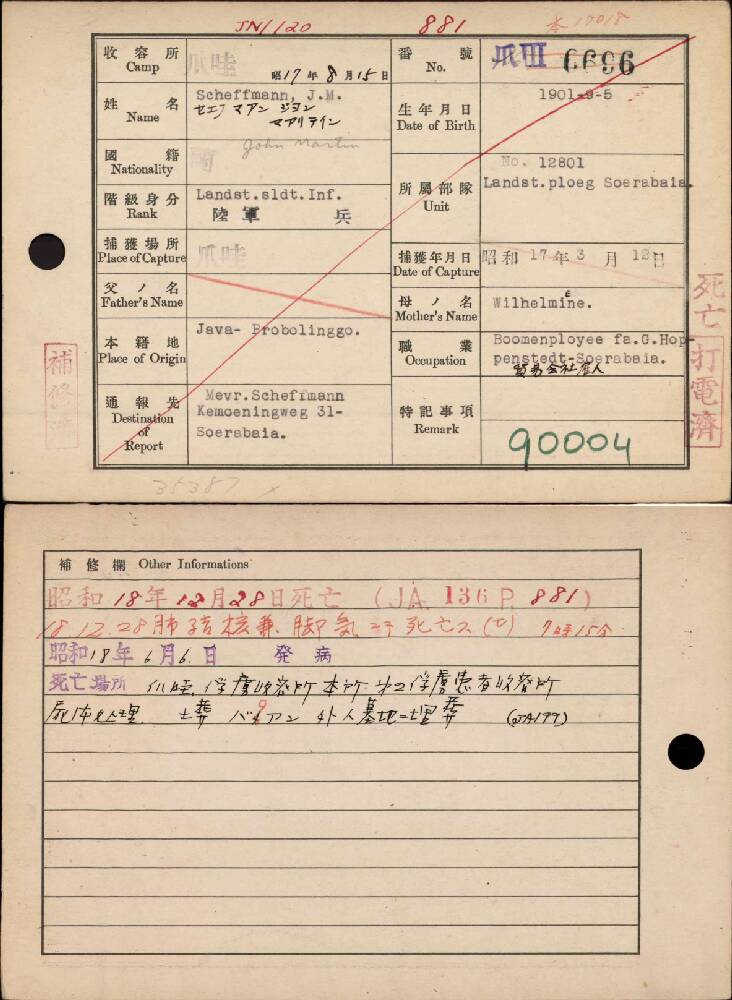 JN1120
881
本17018
収容所
Camp
爪哇
昭17年8月15日
番號
No.
爪Ⅲ 6696
姓名
Name
Scheffmann, J.M.
セエフマアン ジヨン
マアリテイン
John Martin
生年月日
Date of Birth
1901-9-5
國籍
Nationality
蘭
所属部隊
Unit
No. 12801
Landst.ploeg Soerabaia.
階級身分
Rank
Landst.sldt.Inf.
陸軍 兵
捕獲場所
Place of Capture
爪哇
捕獲年月日
Date of Capture
昭和17年3月12日
父ノ名
Father's Name
母ノ名
Mother's Name
Wilhelmine.
本籍地
Place of Origin
Java- Probolinggo.
職業
Occupation
Boomenployee fa.G.Hop-
penstedt-Soerabaia.
貿易会社雇人
通報先
Destination
of
Report
Mevr.Scheffmann
Kemoeningweg 31-
Soerabaia.
特記事項
Remark
90004
死亡
打電濟
補修濟
35387 x
補修欄 Other Informations
昭和18年12月28日死亡 (JA. 136 P. 881)
18.12.28 肺結核兼脚気 死亡ス 7時15分
昭和18年6月6日 発病
死亡場所 俘虜收容所本所 第2俘虜患者收容所
屍体処理 土葬 外人墓地ニ埋葬 (JA199)